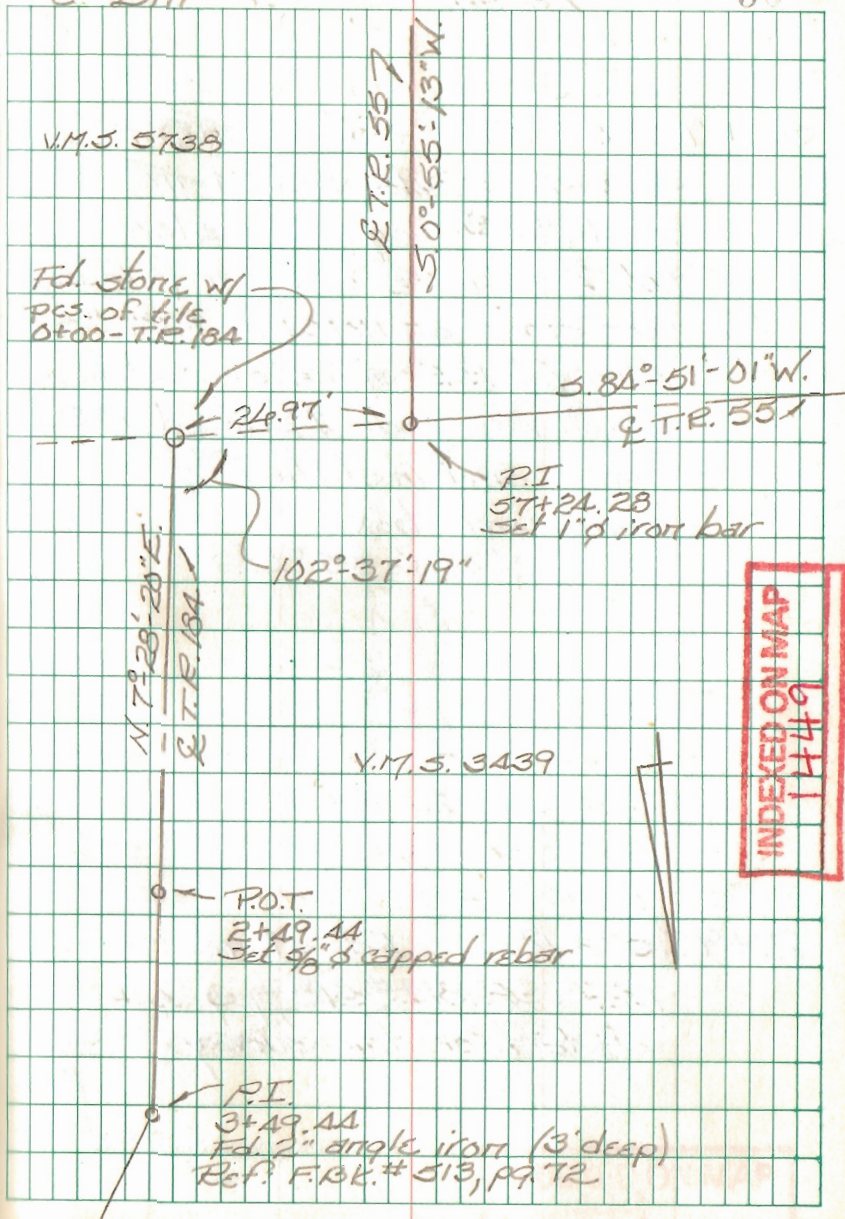 V.M.S. 5738
℄ T.R. 55
S.0°-55'-13"W.
Fd. stone w/
pcs. of tile
0+00-T.R.184
24.97'
S.84°-51'-01"W.
℄ T.R. 55
P.I.
57+24.28
Set 1"ø iron bar
102°-37'-19"
N.7°-28'-20"E.
℄ T.R. 184
INDEXED ON MAP
1449
V.M.S. 3439
P.O.T.
2+49.44
Set 5/8"ø capped rebar
P.I.
3+49.44
Fd. 2" angle iron (3' deep)
Ref. F.BK.# 513, pg. 72